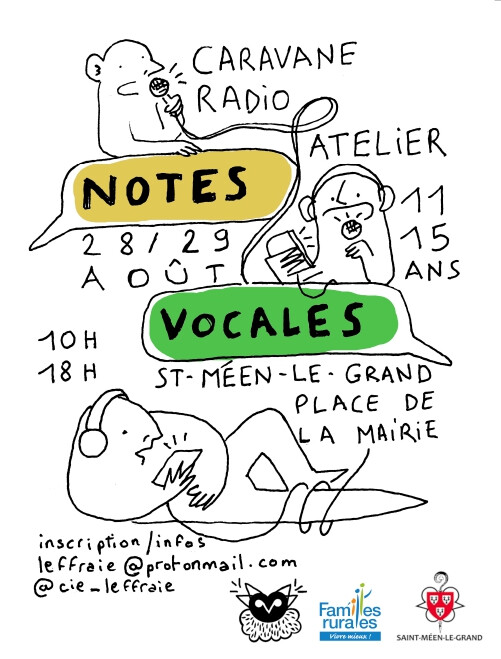 CARAVANE
RADIO
ATELIER
11
15
ANS
NOTES
28/29
AOÛT
VOCALES
10H
18H
ST-MÉEN-LE-GRAND
PLACE DE
LA MAIRIE
inscription/infos
leffraie@protonmail.com
@cie_leffraie
Familles
rurales
Vivre mieux !
SAINT-MÉEN-LE-GRAND